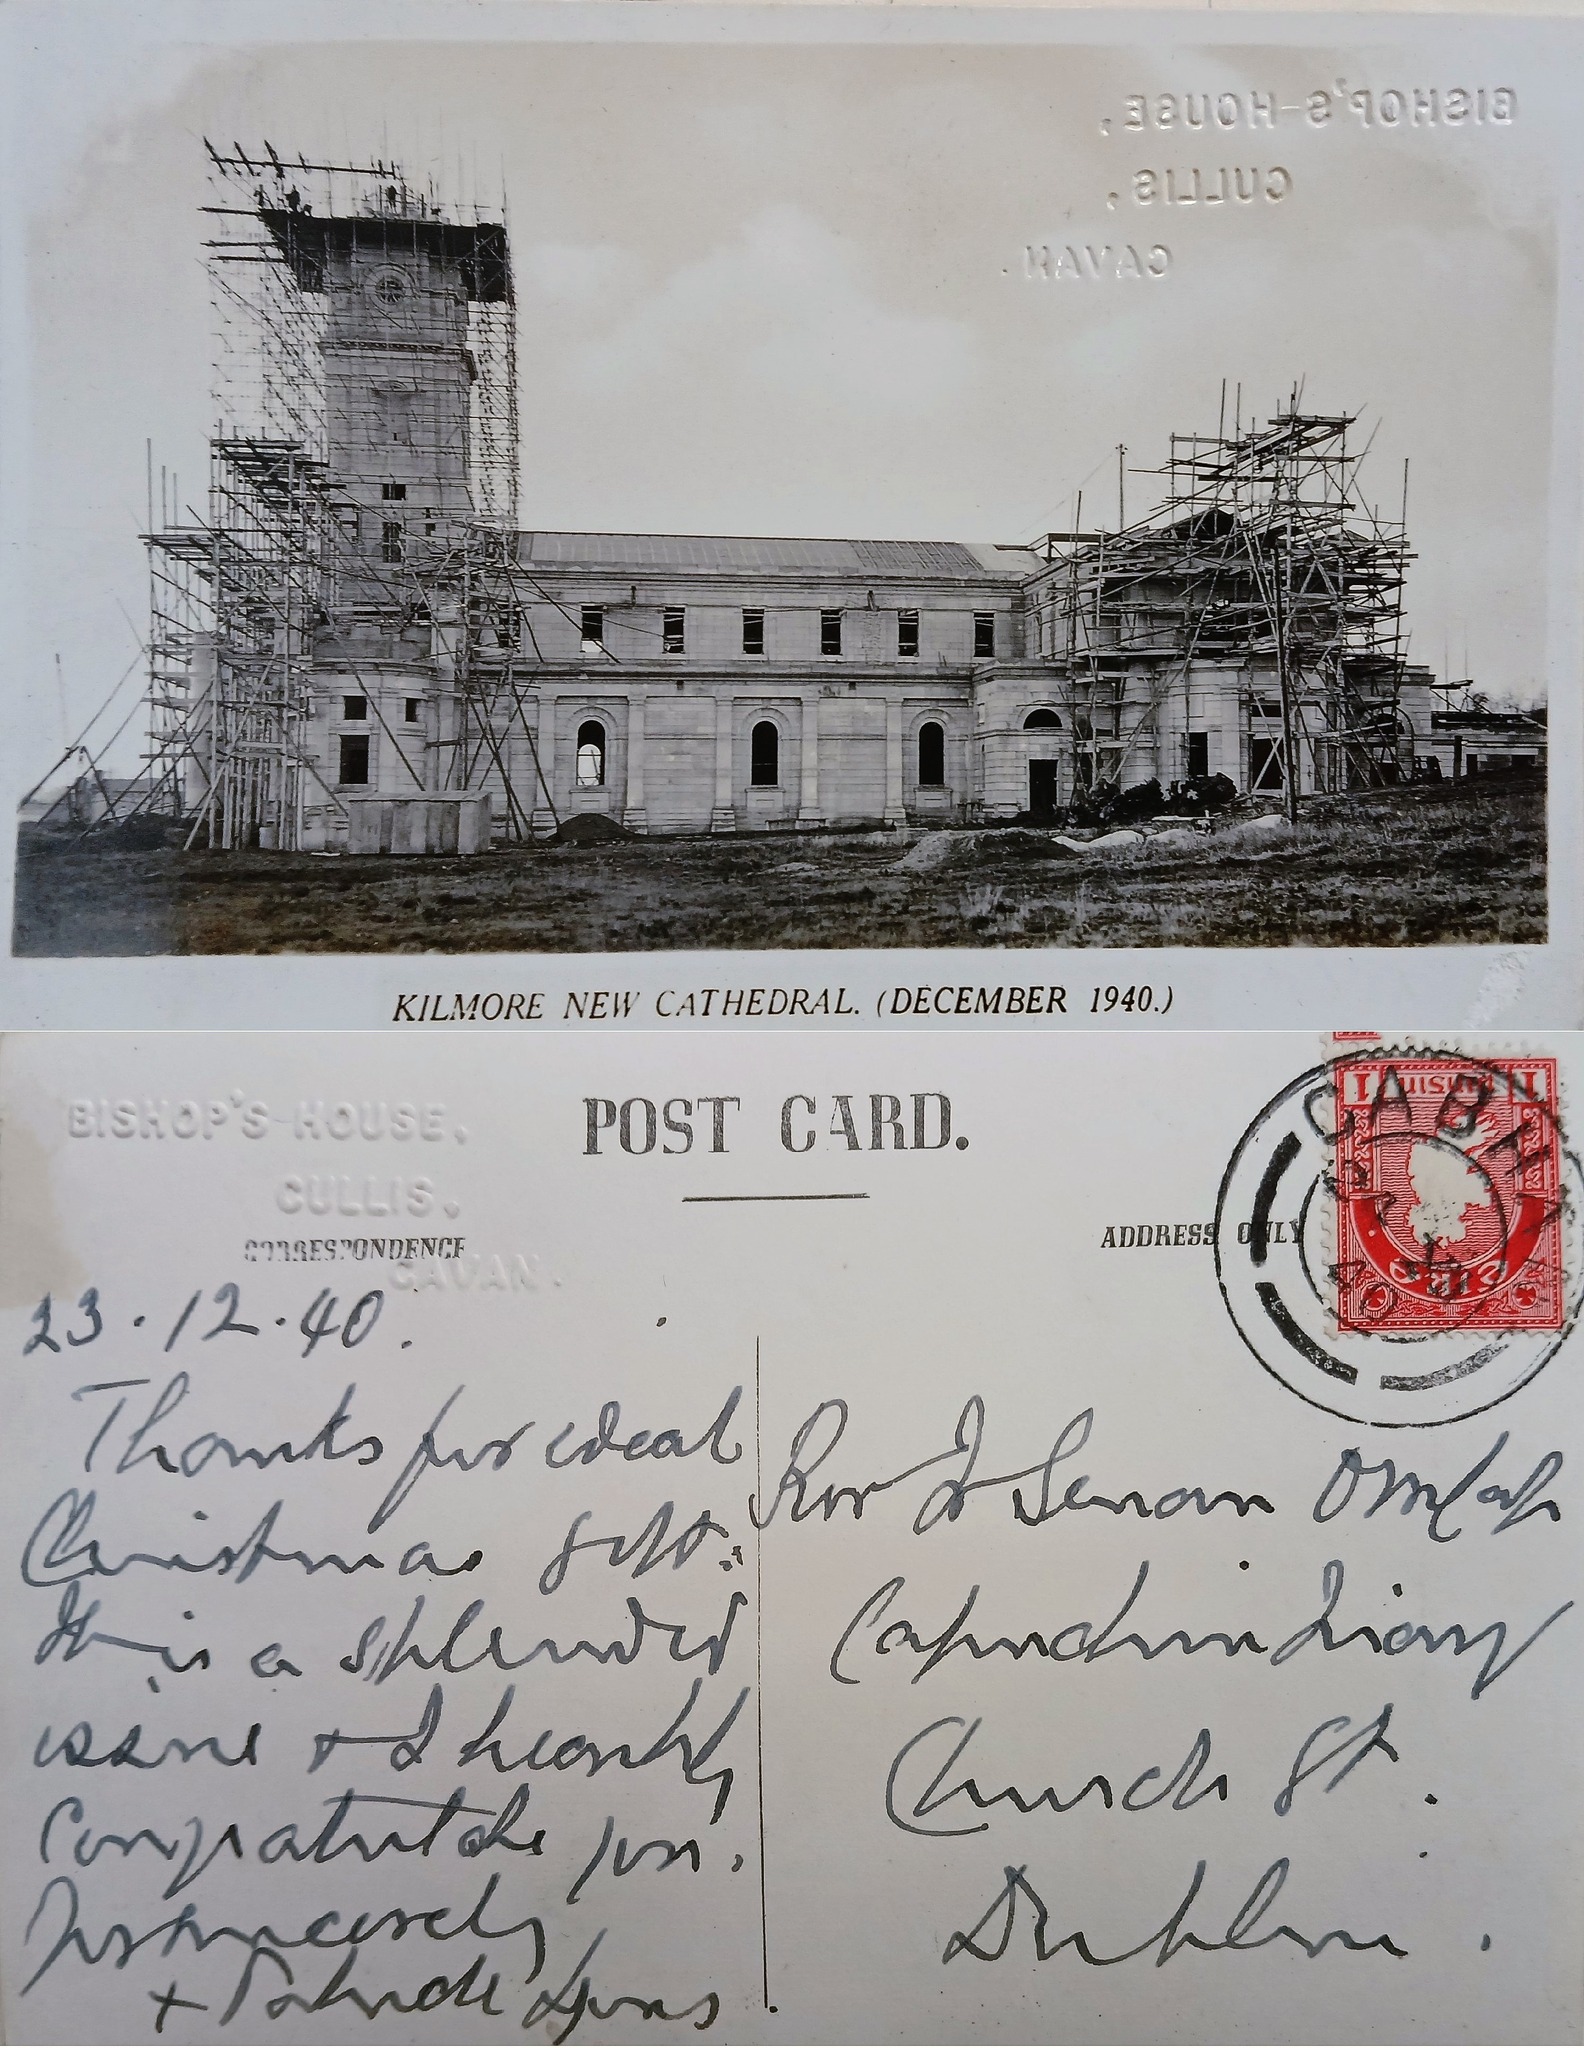 BISHOP'S HOUSE,
CULLIS.
CAVAN.
KILMORE NEW CATHEDRAL. (DECEMBER 1940.)
BISHOP'S HOUSE,
CULLIS.
CAVAN.
POST CARD.
CORRESPONDENCE
ADDRESS ONLY
1 1
CABHÁN
40
23.12.40.
Thanks for ideal
Christmas gift.
It is a splendid
issue & I heartily
congratulate you.
Yrs sincerely
+ Patrick Lyons
Rev Fr Senan OMCap
Capuchin Diary
Church St.
Dublin.